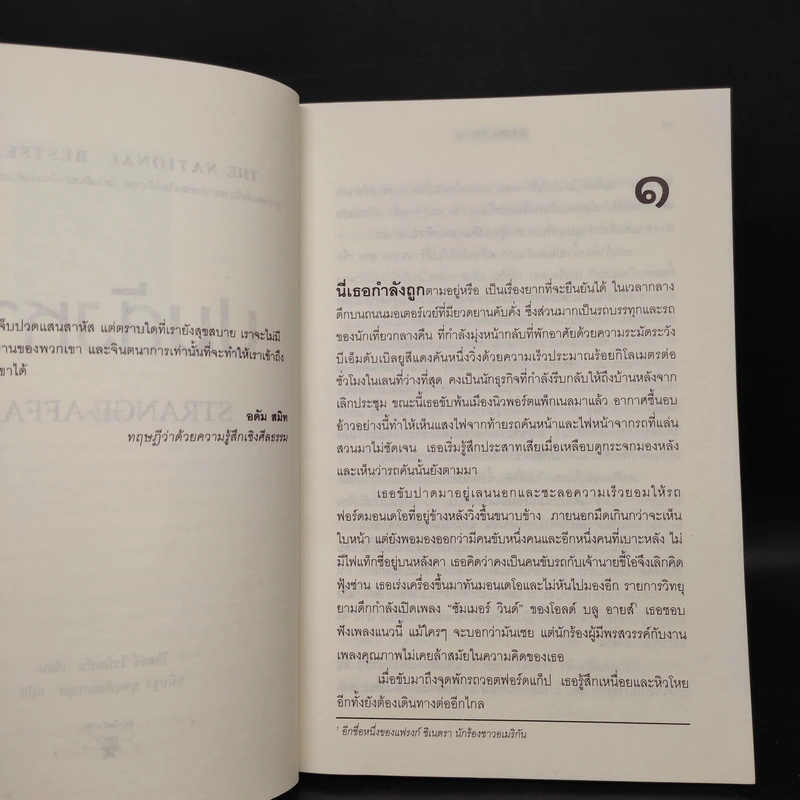 THE NATIONAL BESTSE
STRANGE AFFA
จ็บปวดแสนสาหัส แต่ตราบใดที่เรายังสุขสบาย เราจะไม่มี
านของพวกเขา และจินตนาการเท่านั้นที่จะทำให้เราเข้าถึง
ขาได้
อดัม สมิท
ทฤษฎีว่าด้วยความรู้สึกเชิงศีลธรรม
๑
นี่เธอกำลังถูกตามอยู่หรือ เป็นเรื่องยากที่จะยืนยันได้ ในเวลากลาง
ดึกบนถนนมอเตอร์เวย์ที่มียวดยานคับคั่ง ซึ่งส่วนมากเป็นรถบรรทุกและรถ
ของนักเที่ยวกลางคืน ที่กำลังมุ่งหน้ากลับที่พักอาศัยด้วยความระมัดระวัง
บีเอ็มดับเบิลยูสีแดงคันหนึ่งวิ่งด้วยความเร็วประมาณร้อยกิโลเมตรต่อ
ชั่วโมงในเลนที่ว่างที่สุด คงเป็นนักธุรกิจที่กำลังรีบกลับให้ถึงบ้านหลังจาก
เลิกประชุม ขณะนี้เธอขับพ้นเมืองนิวพอร์ตแพ็กเนลมาแล้ว อากาศชื้นอบ
อ้าวอย่างนี้ทำให้เห็นแสงไฟจากท้ายรถคันหน้าและไฟหน้าจากรถที่แล่น
สวนมาไม่ชัดเจน เธอเริ่มรู้สึกประสาทเสียเมื่อเหลือบดูกระจกมองหลัง
และเห็นว่ารถคันนั้นยังตามมา
เธอขับปาดมาอยู่เลนนอกและชะลอความเร็วยอมให้รถ
ฟอร์ดมอนเดโอที่อยู่ข้างหลังวิ่งขึ้นขนาบข้าง ภายนอกมืดเกินกว่าจะเห็น
ใบหน้า แต่ยังพอมองออกว่ามีคนขับหนึ่งคนและอีกหนึ่งคนที่เบาะหลัง ไม่
มีไฟแท็กซี่อยู่บนหลังคา เธอคิดว่าคงเป็นคนขับรถกับเจ้านายขี้โอ่จึงเลิกคิด
ฟุ้งซ่าน เธอเร่งเครื่องขึ้นมาทันมอนเดโอและไม่หันไปมองอีก รายการวิทยุ
ยามดึกกำลังเปิดเพลง “ซัมเมอร์ วินด์” ของโอลด์ บลู อายส์¹ เธอชอบ
ฟังเพลงแนวนี้ แม้ใครๆ จะบอกว่ามันเชย แต่นักร้องผู้มีพรสวรรค์กับงาน
เพลงคุณภาพไม่เคยล้าสมัยในความคิดของเธอ
เมื่อขับมาถึงจุดพักรถวอตฟอร์ดแก็ป เธอรู้สึกเหนื่อยและหิวโหย
อีกทั้งยังต้องเดินทางต่ออีกไกล
¹ อีกชื่อหนึ่งของแฟรงก์ ซิเนตรา นักร้องชาวอเมริกัน